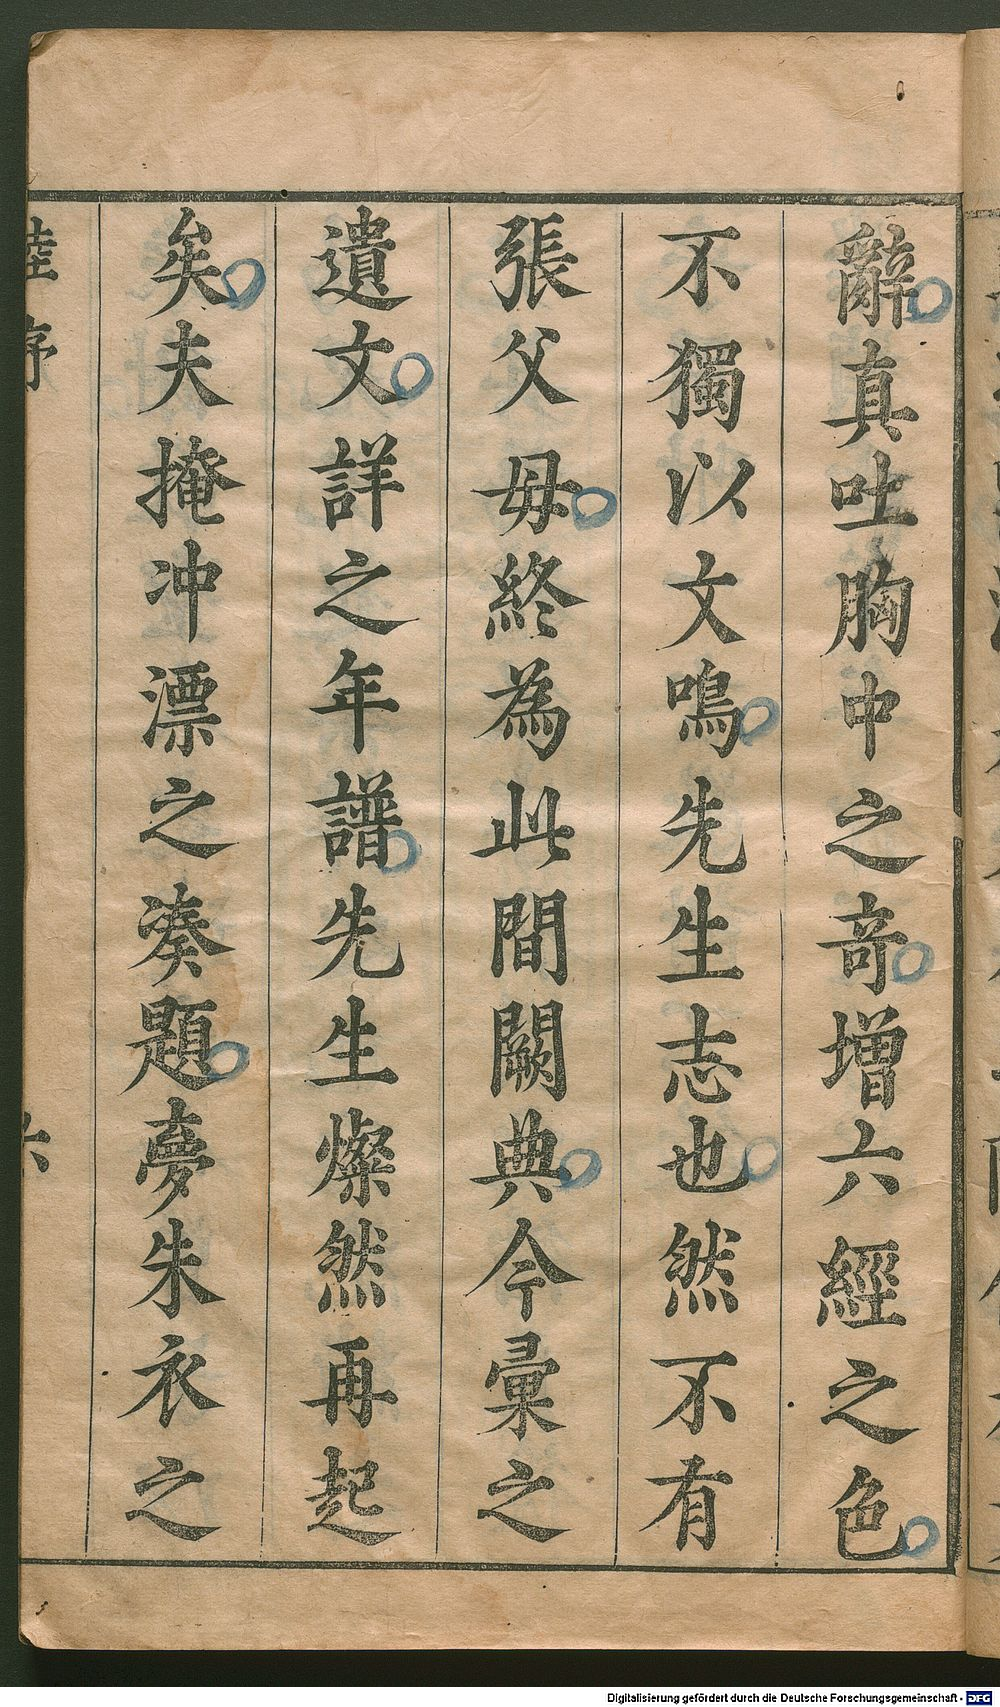 辭真吐胸中之竒增六經之色
不獨以文鳴先生志也然不有
張父毋終為此間闕典今彙之
遺文詳之年譜先生燦然再起
矣夫掩冲漂之凑題夢朱衣之
陸序
六
Digitalisierung gefördert durch die Deutsche Forschungsgemeinschaft - DFG